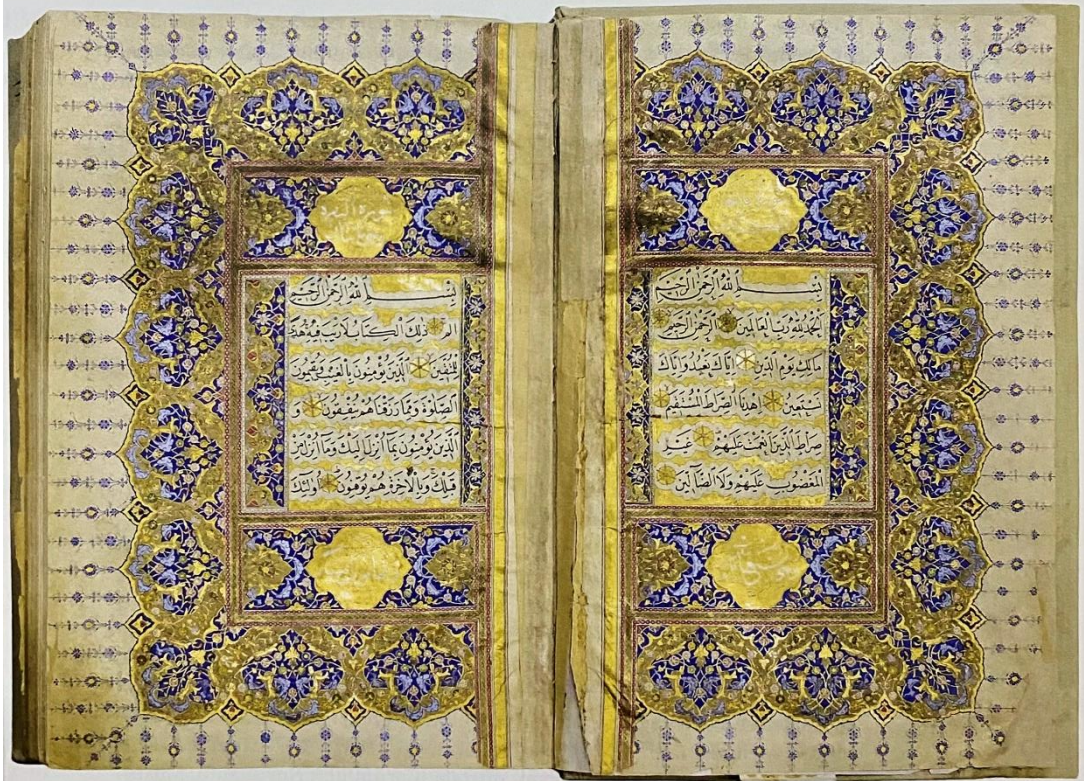 بِسْمِ اللّٰهِ الرَّحْمٰنِ الرَّحِيمِ
اَلْحَمْدُ لِلّٰهِ رَبِّ الْعَالَمِينَ الرَّحْمٰنِ الرَّحِيمِ
مَالِكِ يَوْمِ الدِّينِ اِيَّاكَ نَعْبُدُ وَاِيَّاكَ
نَسْتَعِينُ اِهْدِنَا الصِّرَاطَ الْمُسْتَقِيمَ
صِرَاطَ الَّذِينَ اَنْعَمْتَ عَلَيْهِمْ غَيْرِ
الْمَغْضُوبِ عَلَيْهِمْ وَلَا الضَّالِّينَ
سورة البقرة
بِسْمِ اللّٰهِ الرَّحْمٰنِ الرَّحِيمِ
الم ذٰلِكَ الْكِتَابُ لَا رَيْبَ فِيهِ هُدًى
لِلْمُتَّقِينَ الَّذِينَ يُؤْمِنُونَ بِالْغَيْبِ وَيُقِيمُونَ
الصَّلٰوةَ وَمِمَّا رَزَقْنَاهُمْ يُنْفِقُونَ وَ
الَّذِينَ يُؤْمِنُونَ بِمَا اُنْزِلَ اِلَيْكَ وَمَا اُنْزِلَ مِنْ
قَبْلِكَ وَبِالْاٰخِرَةِ هُمْ يُوقِنُونَ اُولٰئِكَ